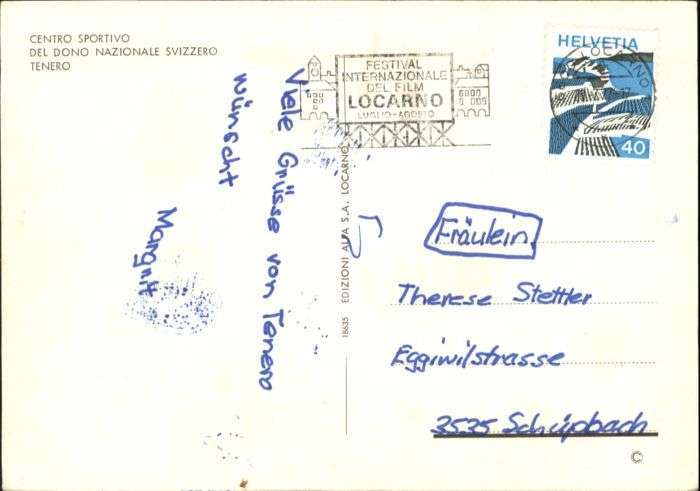 CENTRO SPORTIVO
DEL DONO NAZIONALE SVIZZERO
TENERO
FESTIVAL
INTERNAZIONALE
DEL FILM
LOCARNO
LUGLIO-AGOSTO
HELVETIA
40
LOCARNO
Viele Grüsse von Tenero
wünscht
Margritt
18635 EDIZIONI ALFA S.A. LOCARNO
Fräulein
Therese Stettler
Eggiwilstrasse
3535 Schüpbach
©